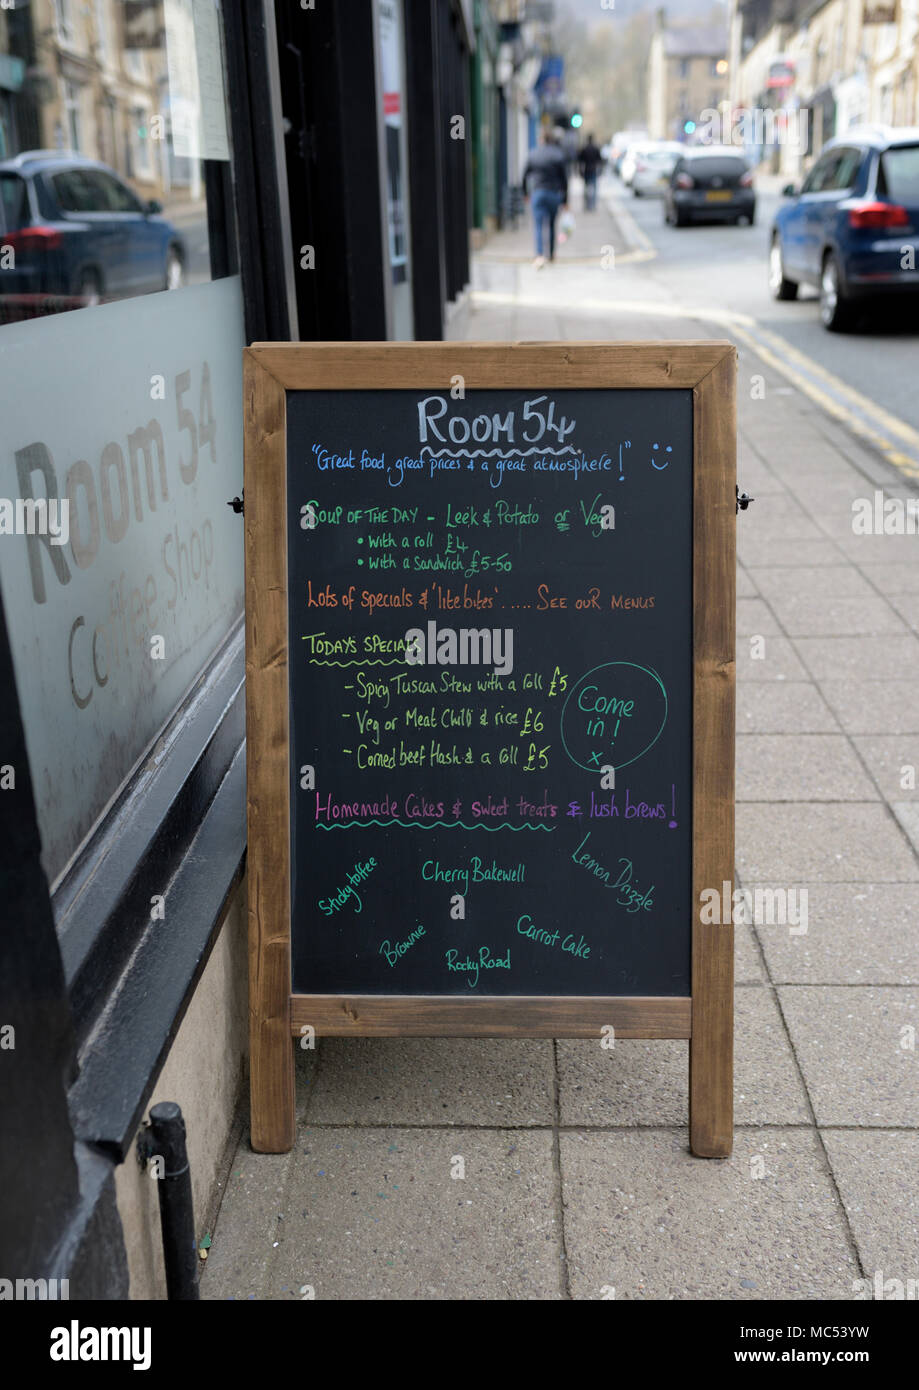 Room 54
Coffee Shop
ROOM 54
"Great food, great prices & a great atmosphere!" :)
SOUP OF THE DAY - Leek & Potato or Veg
• with a roll £4
• with a sandwich £5-50
Lots of specials & 'lite bites' ..... SEE OUR MENUS
TODAYS SPECIALS
- Spicy Tuscan Stew with a roll £5
- Veg or Meat Chilli & rice £6
- Corned beef Hash & a roll £5
Come
in!
x
Homemade Cakes & sweet treats & lush brews!
Sticky toffee
Cherry Bakewell
Lemon Drizzle
Brownie
Rocky Road
Carrot Cake
alamy
alamy
Image ID: MC53YW
www.alamy.com